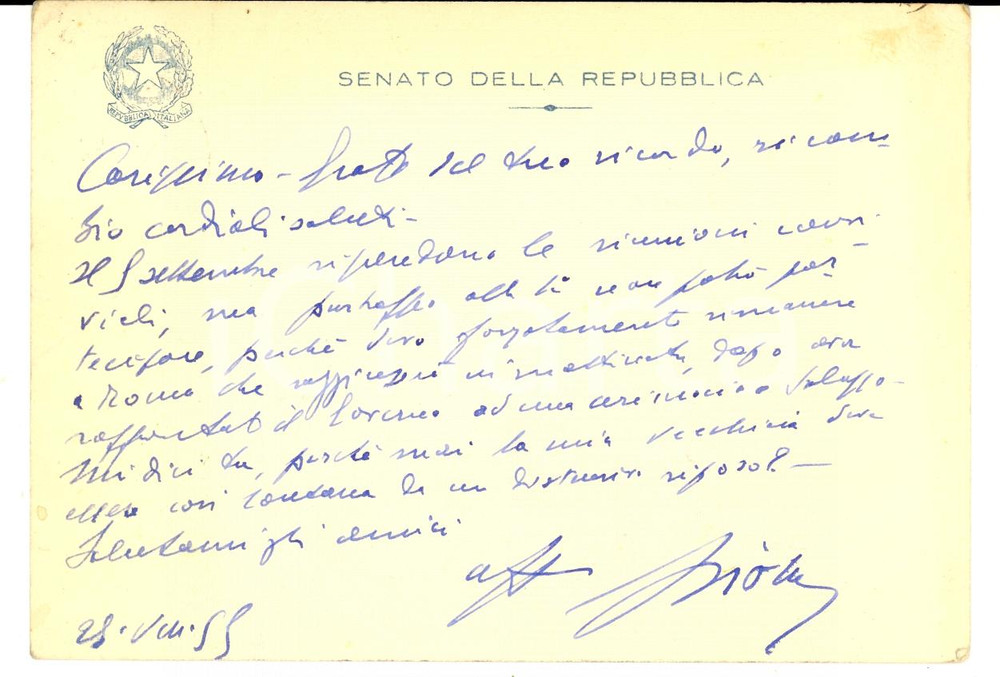 REPUBBLICA ITALIANA
SENATO DELLA REPUBBLICA
Carissimo - grato del tuo ricordo, ricam-
bio cordiali saluti -
Il 5 settembre riprendono le riunioni
ma purtroppo non potrò par
tecipare, perché devo forzatamente rimanere
a Roma che raggiungerò in mattinata, dopo aver
il Governo ad una cerimonia a Saluzzo -
Mi dici tu, perché mai la mia vecchiaia deve
essere così lontana da un riposo? -
Salutami gli amici
aff
25. VIII. 55